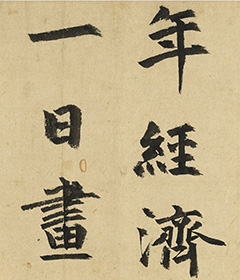 年經濟
一日畫